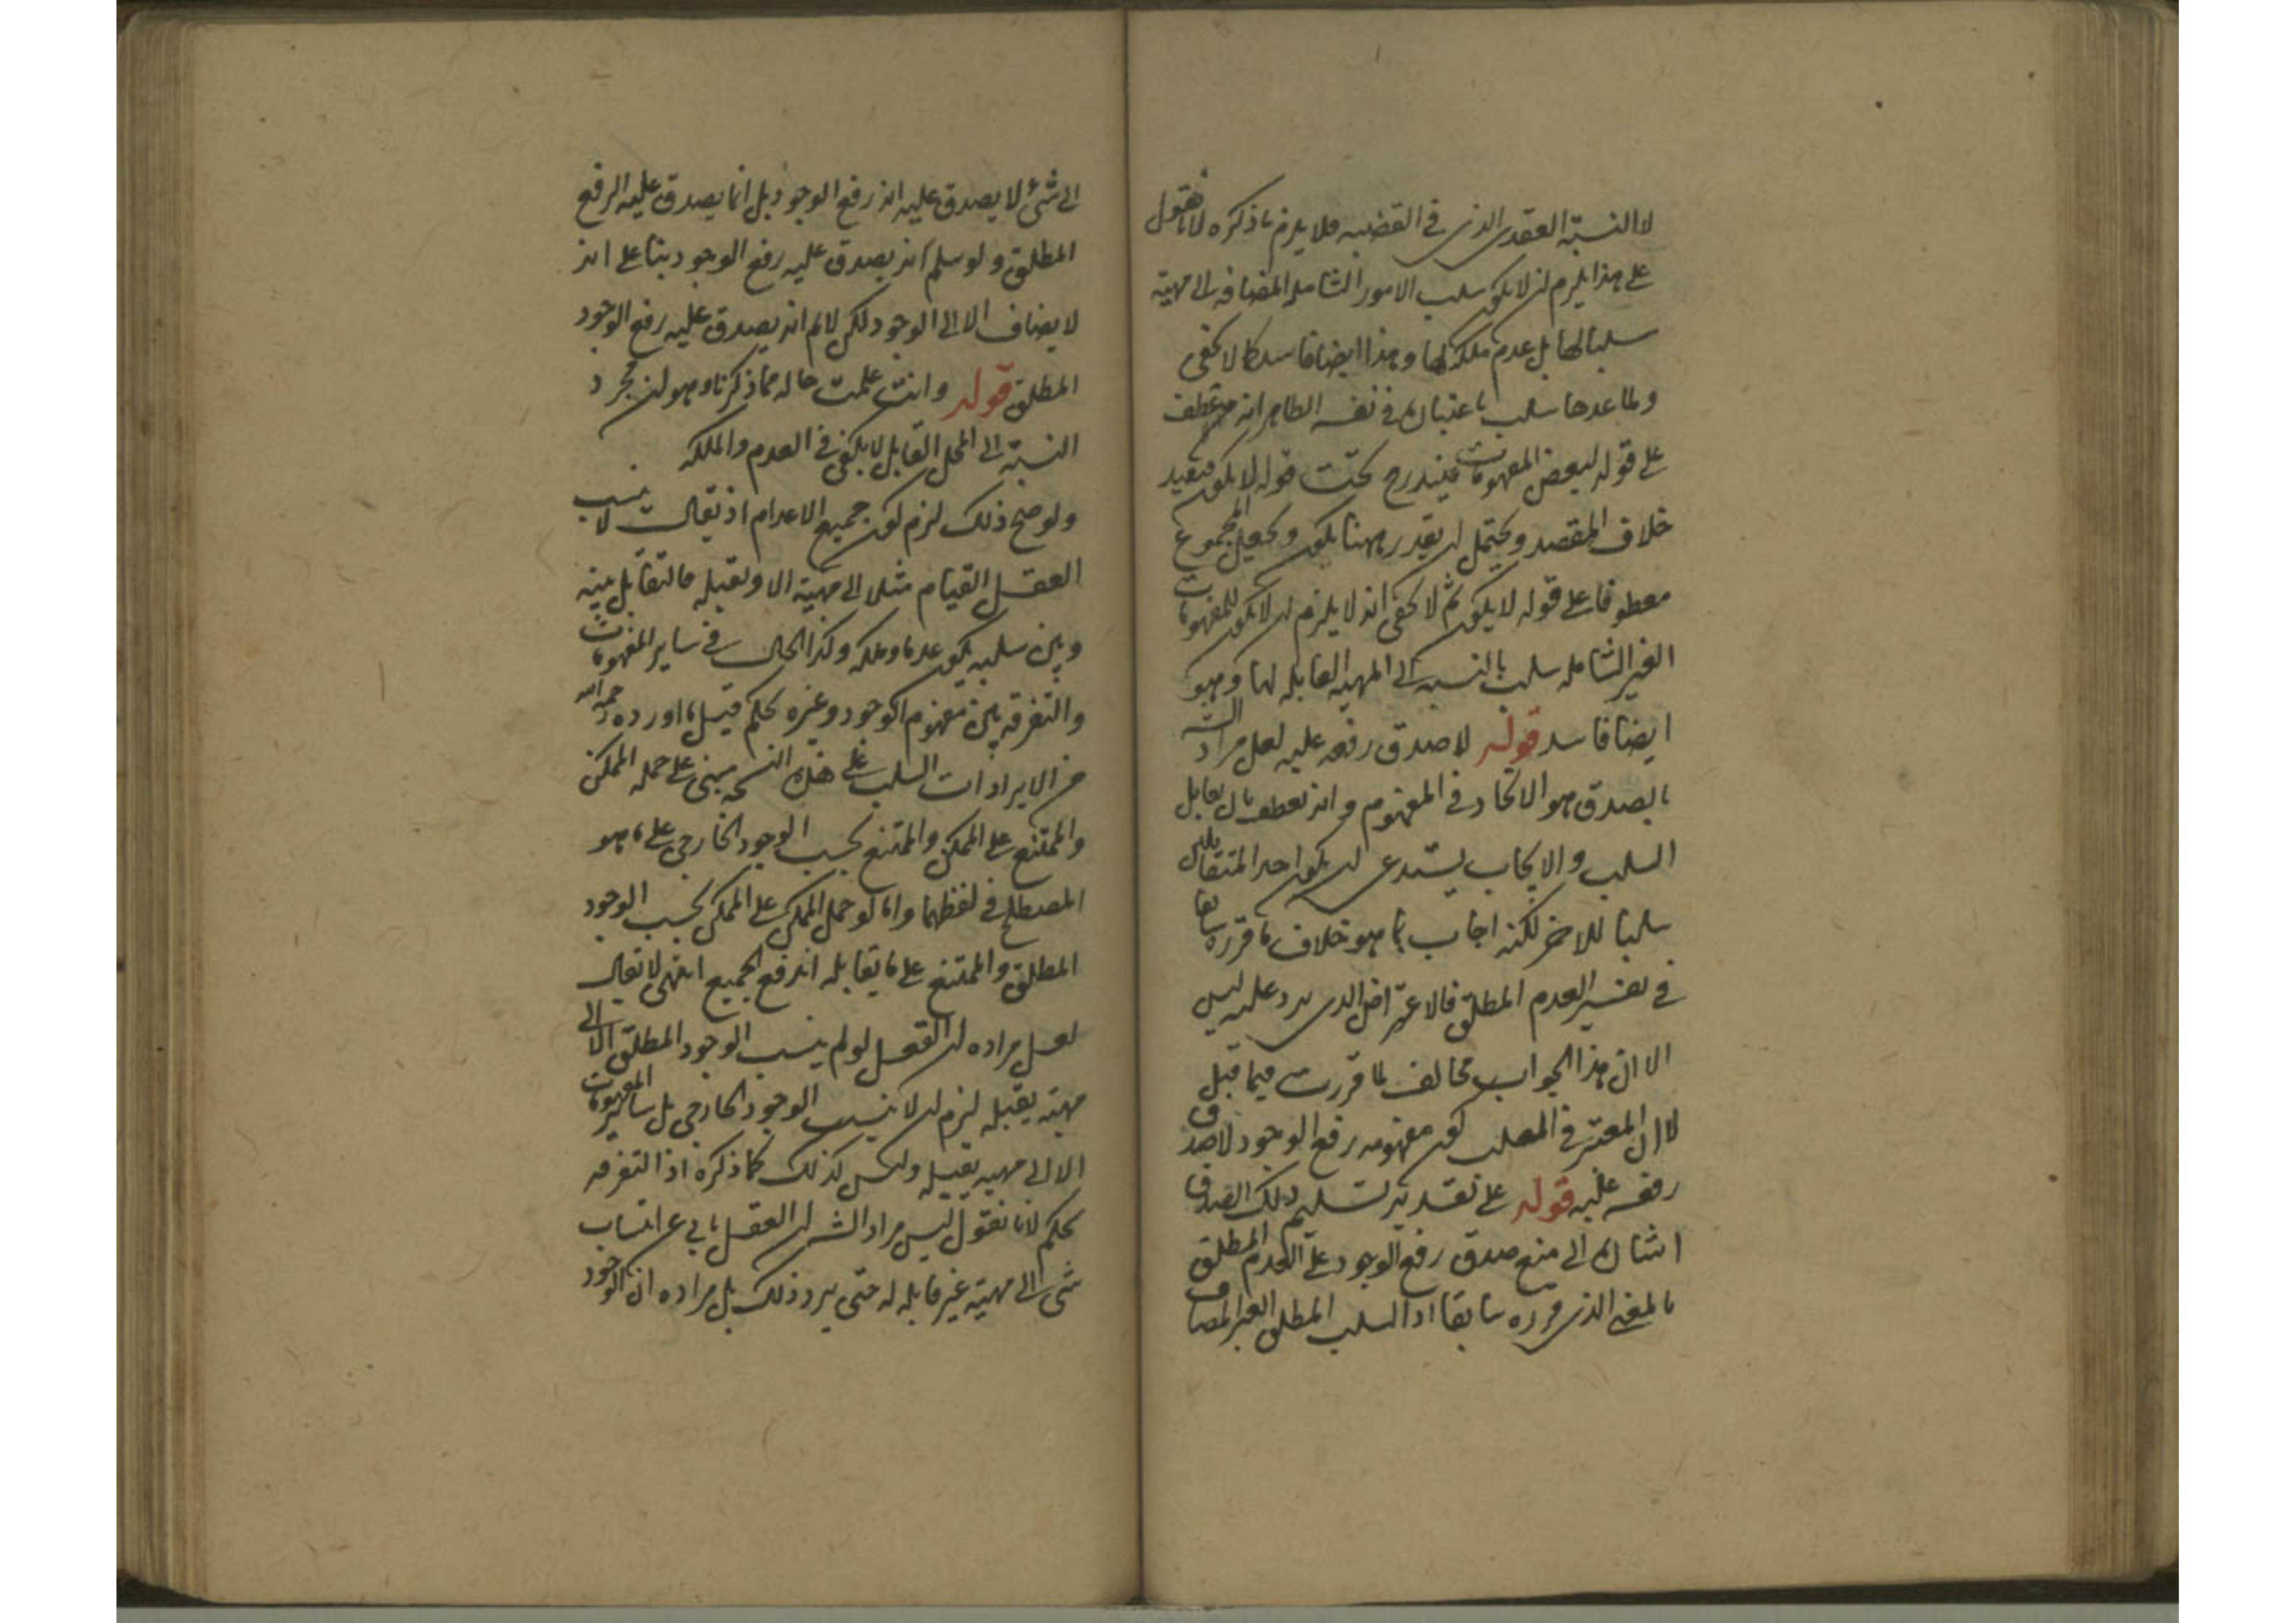 لا النسبة العقدى الذى فى القضيه فلا يلزم ما ذكره لانا نقول
على هذا يلزم ان لا يكون سلب الامور الشامله المضافه الى مهية
سلبا لها بل عدم ملكة لها وهذا ايضا فاسد كما لا يخفى
ولما عدها سلب باعتباره فى نفسه الظاهر انه عطف
على قوله لبعض المفهومات فيندرج تحت قوله لا يكون فيفيد
خلاف المقصد ويحتمل ان يقدر ههنا يكون ويجعل المجموع
معطوفا على قوله لا يكون ثم لا يخفى انه لا يلزم ان لا يكون للمفهومات
الغير الشامله سلب بالنسبه الى المهيه القابله لها وهو
ايضا فاسد قوله لا صدق رفعه عليه لعل مراد الش
بالصدق هو الاتحاد فى المفهوم وانه تعطف بان تقابل
السلب والايجاب يستدعى ان يكون احد المتقابلين
سلبا للاخر لكنه اجاب بما هو خلاف ما قرره سابقا
فى تفسير العدم المطلق فالاعتراض الذى يرد عليه ليس
الا ان هذا الجواب مخالف لما قررت فيما قبل
لا ان المعتبر فى المطلب كون مفهومه رفع الوجود لا صدق
رفعه عليه قوله على تقدير تسليم ذلك الصدق
اشاره الى منع صدق رفع الوجود على العدم المطلق
بالمعنى الذى قرره سابقا اذ السلب المطلق الغير المضاف
الى شىء لا يصدق عليه انه رفع الوجود بل انما يصدق عليه الرفع
المطلق ولو سلم انه يصدق عليه رفع الوجود بناء على انه
لا يضاف الا الى الوجود لكن لا نم انه يصدق عليه رفع الوجود
المطلق قوله وانت علمت حاله مما ذكرنا وهو ان مجرد
النسبة الى المحل القابل لا يكفى فى العدم والملكه
ولو صح ذلك لزم كون جميع الاعدام اذ يقال لا ينسب
العقل القيام مثلا الى مهية الا وتقبله فالتقابل بينه
وبين سلبه يكون عدما وملكه وكذا الحال فى ساير المفهومات
والتفرقه بين مفهوم الوجود وغيره تحكم قيل ما اورده رحمه الله
من الايرادات السلب على هذه النسخه مبنى على حمله الممكن
والممتنع على الممكن والممتنع بحسب الوجود الخارجى على ما هو
المصطلح فى لفظهما واما لو حمل الممكن على الممكن بحسب الوجود
المطلق والممتنع على ما يقابله اندفع الجميع انتهى لا يقال
لعل مراده ان العقل لو لم ينسب الوجود المطلق الا الى
مهية يقبله لزم ان لا ينسب الوجود الخارجى بل ساير المفهومات
الا الى مهيه يقبله وليس كذلك كما ذكره اذ التفرقه
تحكم لانا نقول ليس مراد الش ان العقل يابى عن انتساب
شى الى مهية غير قابله له حتى يرد ذلك بل مراده ان الوجود